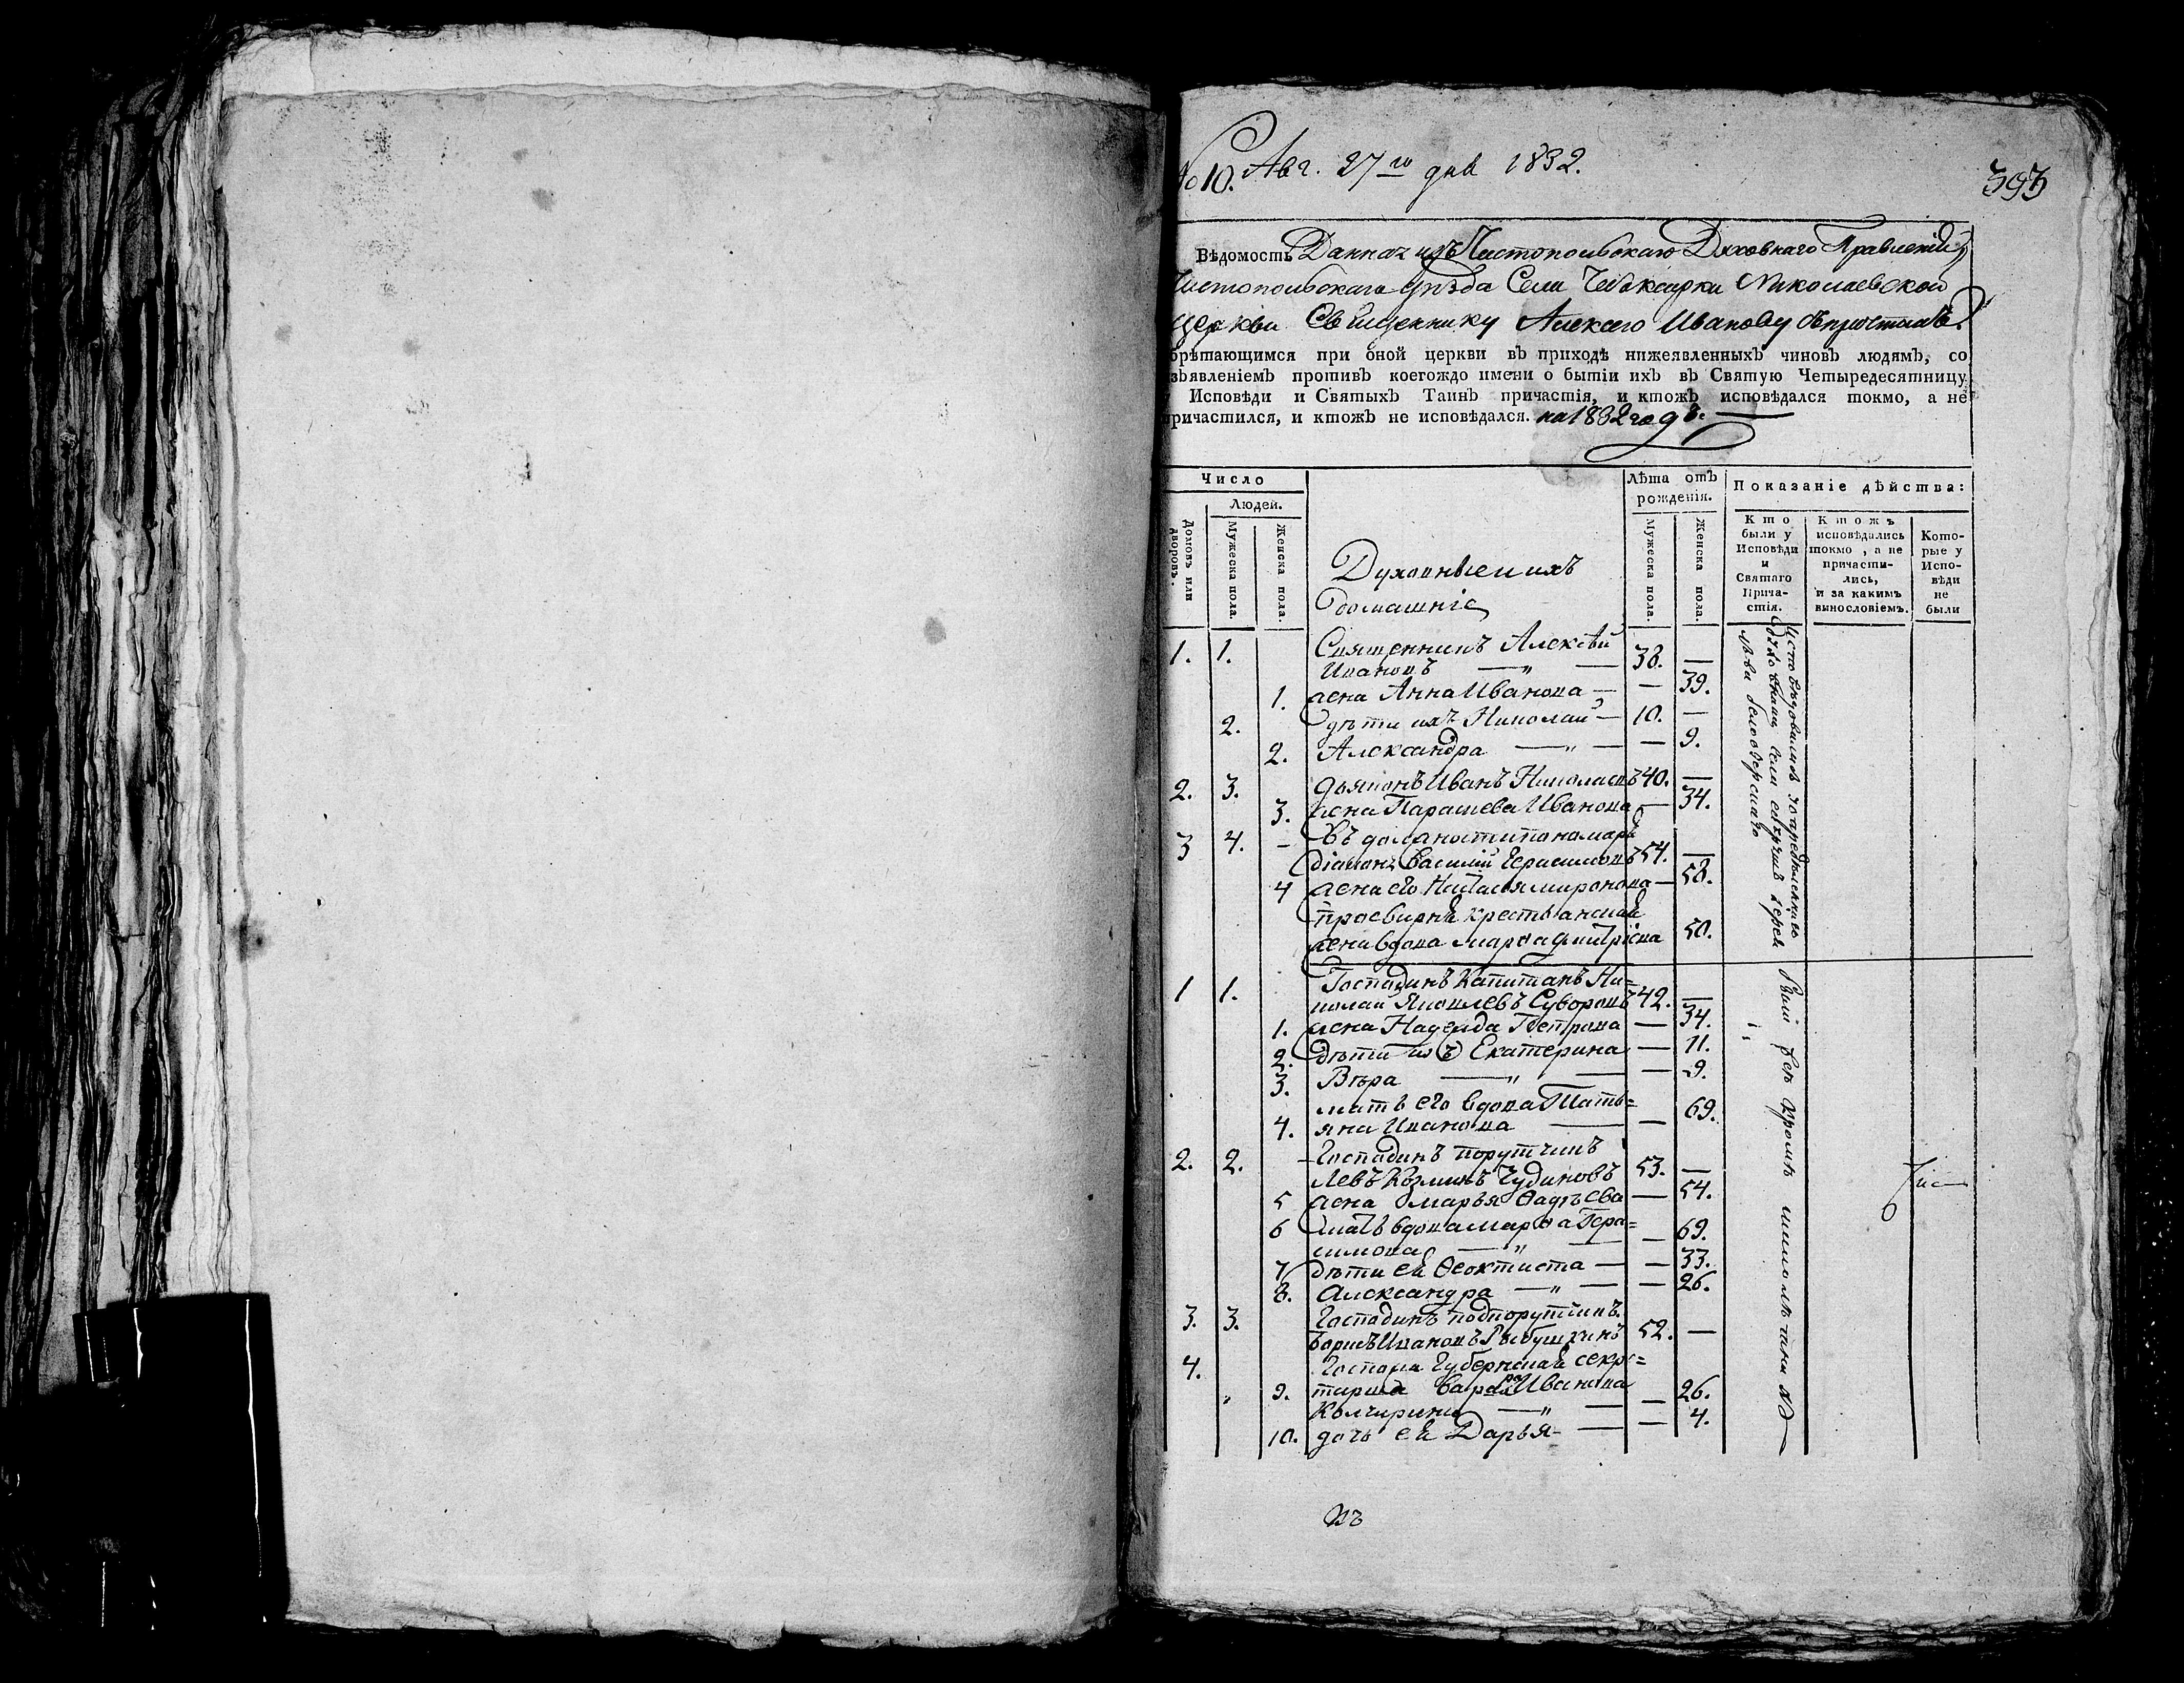 № 10. Авг. 27го дня 1832.
393
Вѣдомость Данная изъ Чистопольскаго Духовнаго Правленія,
Чистопольскаго уѣзда Села Чебоксарки Николаевской
Церкви Священнику Алексѣю Иванову съ причтомъ
обрѣтающимся при оной церкви въ приходѣ нижеявленныхъ чиновъ людямъ, со
изъявленіемъ противъ коегождо имени о бытіи ихъ въ Святую Четыредесятницу
у Исповѣди и Святыхъ Таинъ причастія, и ктожъ исповѣдался токмо, а не
причастился, и ктожъ не исповѣдался. на 1832 годъ.
Число
Людей.
Домовъ или дворовъ.
Мужеска пола.
Женска пола.
Духовные и ихъ
домашніе
Лѣта отъ
рожденія.
Мужеска пола.
Женска пола.
Показаніе дѣйства:
Кто
были у
Исповѣди
и
Святаго
Прича-
стія.
Ктожъ
исповѣдались
токмо, а не
причасти-
лись,
и за какимъ
винословіемъ.
Кото-
рые у
Испо-
вѣди
не
были
1. 1. Священникъ Алексѣй
Ивановъ — 38. —
1. жена Анна Иванова — — 39.
2. дѣти ихъ Николай — 10. —
2. Александра — — 9.
2. 3. дьяконъ Иванъ Николаевъ 40. —
3. жена Парашева Иванова — 34.
3 4. — Въ должности пономаря
діаконъ Василій Герасимовъ 54. —
4 жена его Наталья миронова — 58.
просвирня крестьянская
жена вдова марфа дмитріева 50.
1 1. Господинъ Капитанъ Ни=
колай Яковлевъ Суворовъ 42. —
1. жена Надежда Петрова — 34.
2. дѣти ихъ Екатерина — 11.
3. Вѣра — — 9.
мать его вдова Тать=
4. яна Иванова — — 69.
2. 2. Господинъ порутчикъ
Левъ Козминъ Чудиновъ 53. —
5 жена марья Фадѣева — 54.
6 мать вдова марфа Гера=
симова — — 69.
7 дѣти ея Феоктиста — — 33.
8. Александра — — 26.
3. 3. Господинъ подпорутчикъ
Борисъ Ивановъ Рыбушкинъ 52. —
4. Госпожа Губернская секре=
9. тарша Варвара Иванова
— 26.
10. дочь ея Дарья — — 4.
всѣ кромѣ
въ